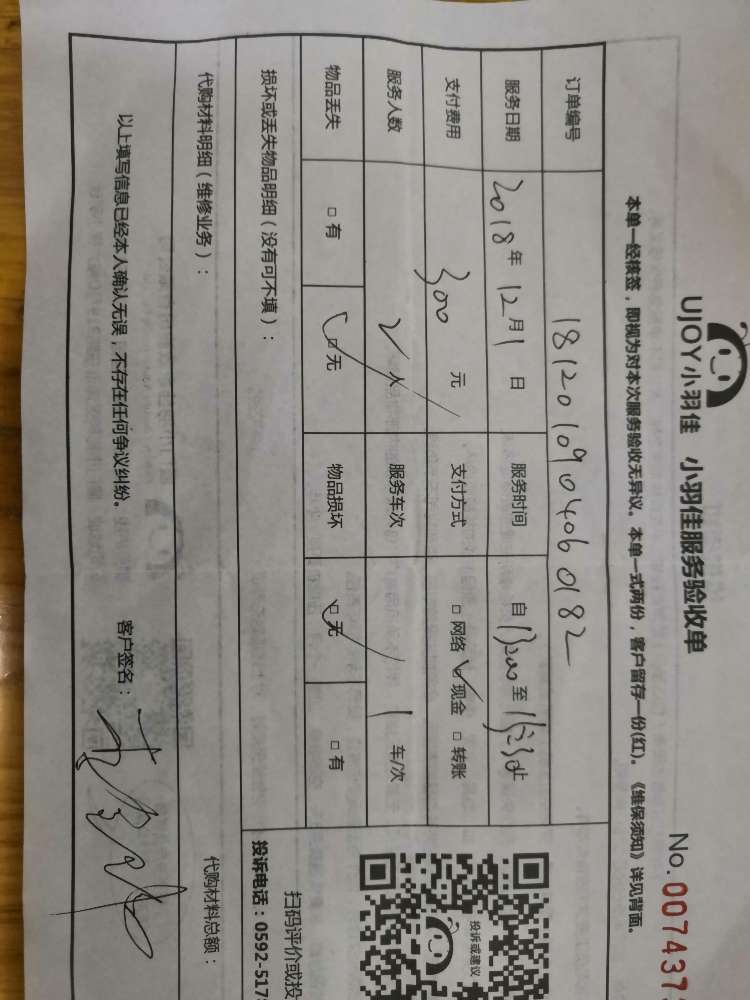 UJOY小羽佳 小羽佳服务验收单
No.007437
本单一经核签，即视为对本次服务验收无异议。本单一式两份，客户留存一份(红)。《维保须知》详见背面。
订单编号 181201090406 0182
服务日期 2018年12月1日 服务时间 自13:00至
支付费用 300元 支付方式 □网络 ☑现金 □转账
服务人数 2人 服务车次 1车/次
物品丢失 □有 ☑无 物品损坏 ☑无 □有
损坏或丢失物品明细（没有可不填）：
投诉或建议
扫码评价或投
投诉电话：0592-517
代购材料明细（维修业务）： 代购材料总额：
以上填写信息已经本人确认无误，不存在任何争议纠纷。 客户签名：